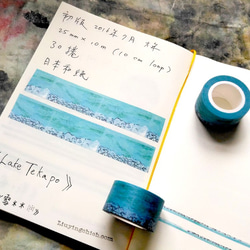 初版 2016年7月
25mm × 10m (10cm loop)
30捲
日本和紙
《Lake Tekape》
liuyingchieh.com